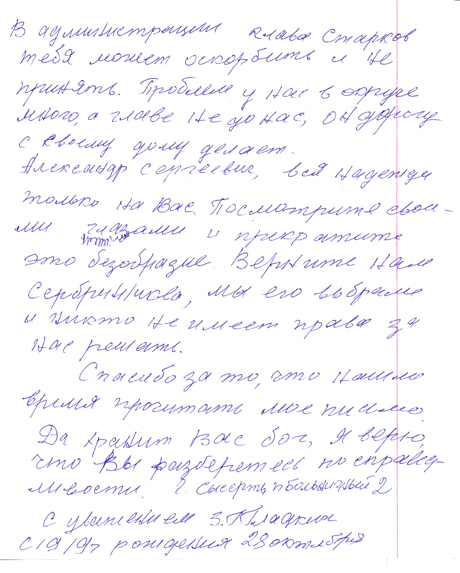 В администрации глава Старков
тебя может оскорбить и не
принять. Проблем у нас в округе
много, а главе не до нас, он дорогу
с своему дому делает.
Александр Сергеевич, вся надежда
только на Вас. Посмотрите свои-
ми глазами и прекратите
это безобразие. Верните нам
Серебринникова, мы его выбрали
и никто не имеет права за
нас решать.
Спасибо за то, что нашли
время прочитать мое письмо.
Да хранит Вас бог, я верю,
что Вы разберетесь по справед-
ливости. г. Сысерть п Больничный 2
С уважением З.
с 1919г рождения 28 октября